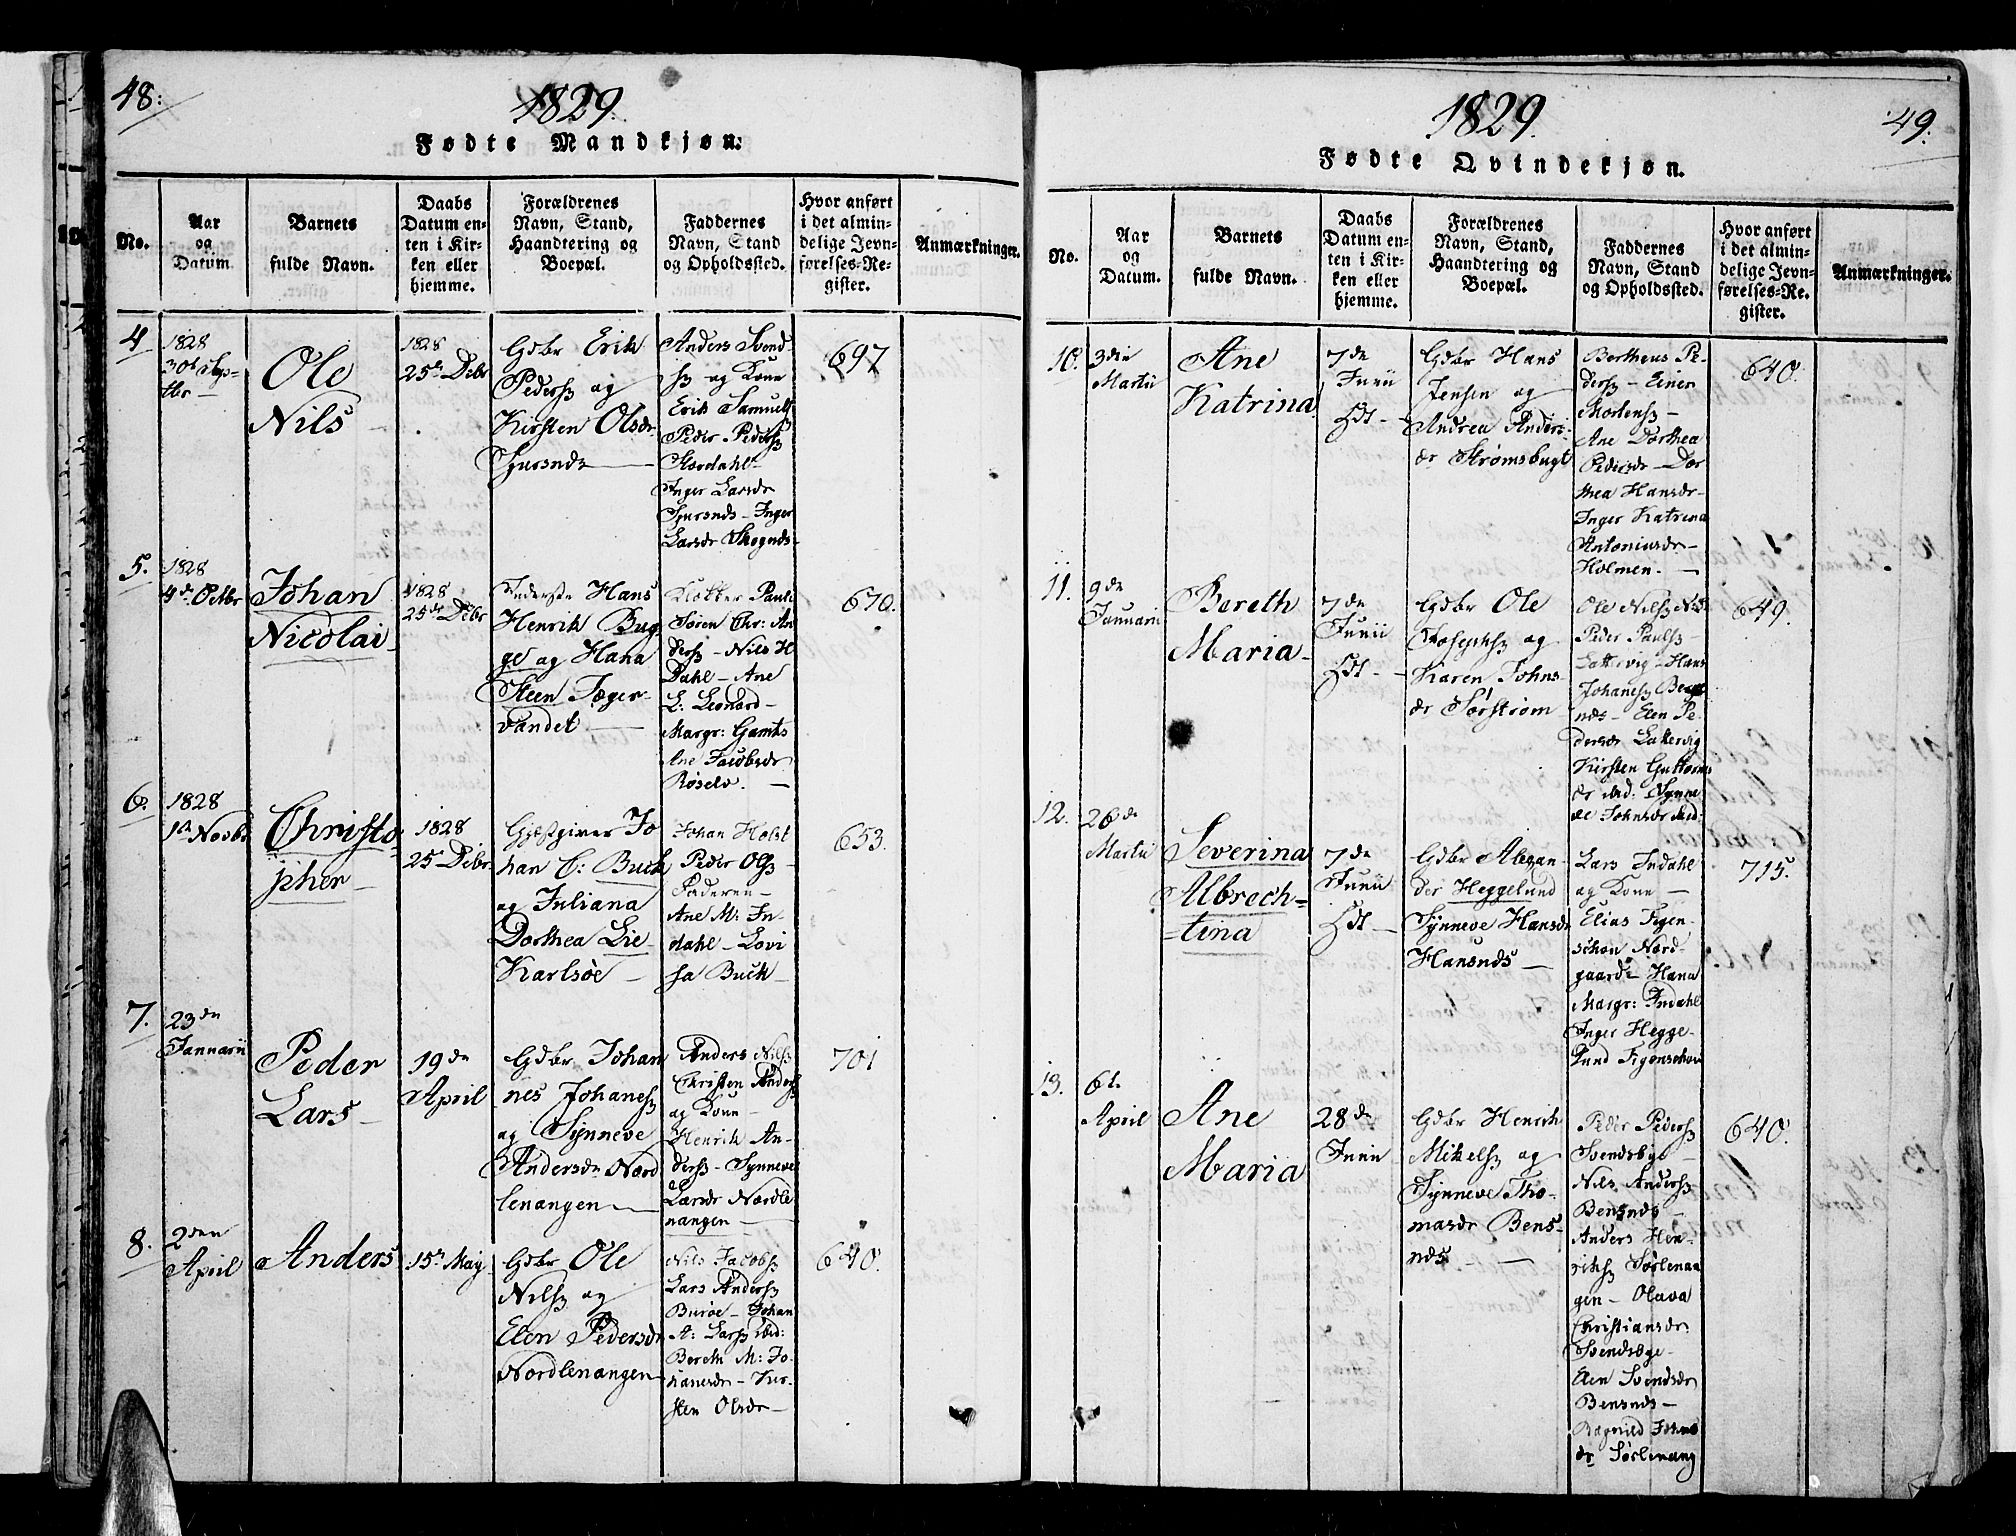 48:
1829.
Fødte Mandkjøn.
No.
Aar
og
Datum
Barnets
fulde Navn.
Daabs
Datum en-
ten i Kir-
ken eller
hjemme.
Forældrenes
Navn, Stand,
Haandtering og
Boepæl.
Faddernes
Navn, Stand
og Opholdssted.
Hvor anført
i det almin-
delige Jevn-
førelses-Re-
gister.
Anmærkninger.
4
1828
Ole
Nils
1828
25de Debr
Gdbr Erik
Peders og
Kirsten Olsdr
Anders Svend-
og Kone
Erik Samuels
Peder Peders
Stordahl
Inger Larsdr
Inger
Larsdr
697
5.
1828
4de Octbr
Johan
Nicolai
1828
25de Debr
Inderste Hans
Henrik Bug
ge og Hana
Steen Jæger-
vandet
Klokker
Søren Chr: An
ders - Nils H
Dahl - Ane
L: Leonard -
Margr:
Ane Jacobsdr
Røselv.
670.
6.
1828
1de Novbr
Christo
pher
1828
25de Debr
Gjæstgiver Jo
han C: Buck
og Juliana
Dorthea Lie
Karlsøe
Johan Holst
Peder Ols
Ane M: In-
dahl - Lovi
sa Buck
653.
7.
23de
Januarii
Peder
Lars
19de
April
Gdbr Johan
nes Johanes
og Synneve
Andersdr Nord
lenangen
Anders Nils
Christen Anders
og Kone
Henrik An-
ders - Synneve
Larsdr Nordle
nangen
701
8.
2den
April
Anders
15de May
Gdbr Ole
Nils og
Elen Pedersdr
Nordlenangen
Nils Jacobs
Lars Anders
Burøe - Johan
A: Lars ibid:
Bereth M: Jo-
hanesdr - Kir-
sten Olsdr
640.
49.
1829.
Fødte Qvindekjøn.
No.
Aar
og
Datum.
Barnets
fulde Navn.
Daabs
Datum en-
ten i Kir-
ken eller
hjemme.
Forældrenes
Navn, Stand,
Haandtering og
Boepæl.
Faddernes
Navn, Stand
og Opholdssted.
Hvor anført
i det almin-
delige Jevn-
førelses-Re-
gister.
Anmærkninger.
10.
3die
Martii
Ane
Katrina
7de
Junii
Gdbr Hans
Jensen og
Andrea Anders-
dr Strømsbugt
Bertheus Pe-
ders - Einer
Mortens
Ane Dorthea
Pedersdr - Dor
thea Hansdr
Inger Katrina
Antoniusdr
Holmen.
640.
11.
9de
Januarii
Bereth
Maria
7de
Junii
Gdbr Ole
Josephs og
Karen Johns-
dr Sørstrøm
Ole Nils
Peder Pauls
Lattervig - Hans
Johanes
Elen Pe-
dersdr Lattervig
Kirsten Guttorms
dr ibid: Synne
ve Johnsdr ibid
649.
12.
26de
Martii
Severina
Albrech-
tina
7de
Junii
Gdbr Alexan-
der Heggelund
Synneve Hansdr
Hansnds
Lars Indahl
og Kone
Elias Figen-
schou Nord-
gaard - Hana
Margr: Indahl
Inger Hegge-
lund Figenschou
715.
13.
6te
April
Ane
Maria
28de
Junii
Gdbr Henrik
Mikels og
Synneve Tho-
masdr Bens-
nds
Peder Peders
Svendsbye
Nils Anders
Bensnds
Anders Hen-
riks Sørlenan
gen - Olava
Christiansdr
Elen Svendsdr
Bensnds
Ragnild Johns
dr Sørlenang
640.